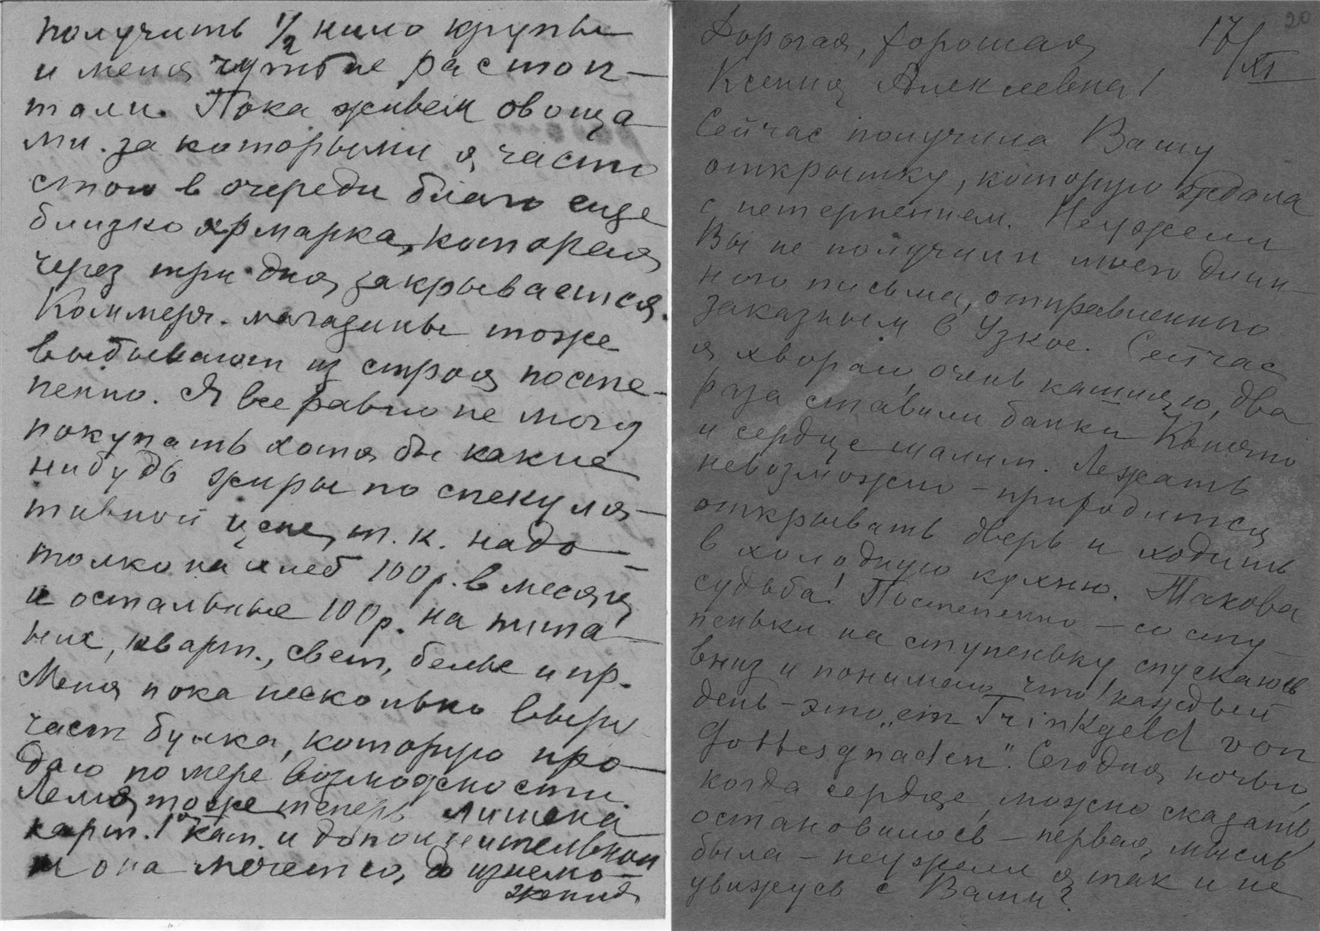 получить 1/2 кило крупы
и меня чуть не растоп-
тали. Пока живем овоща-
ми. за которыми я часто
стою в очереди благо еще
близко ярмарка, которая
через три дня закрывается.
Коммерч. магазины тоже
выбывают из строя посте-
пенно. Я все равно не могу
покупать хотя бы какие
нибудь жиры по спекуля-
тивной цене, т. к. надо
толко на хлеб 100 р. в месяц
и остальные 100 р. на пита-
ние, кварт., свет, белье и пр.
Меня пока несколько выру-
чает булка, которую про-
даю по мере возможности.
Леля тоже теперь лишена
карт. 1 кат. и дополнительной
и она мечется, до изнемо-
жения
20
17/XI
Дорогая, хорошая
Ксения Алексеевна!
Сейчас получила Вашу
открытку, которую ждала
с нетерпением. Неужели
Вы не получили моего длин-
ного письма, отправленного
заказным в Узкое. Сейчас
я хвораю, очень кашляю, два
раза ставили банки. Конечно
и сердце шалит. Лежать
невозможно - приходится
открывать дверь и ходить
в холодную кухню. Такова
судьба! Постепенно - со сту-
пеньки на ступеньку спускаюсь
вниз и понимаю, что каждый
день - это „ein Trinkgeld von
Gottesgnaden". Сегодня ночью,
когда сердце, можно сказать,
остановилось - первая мысль
была - неужели я так и не
увижусь с Вами?